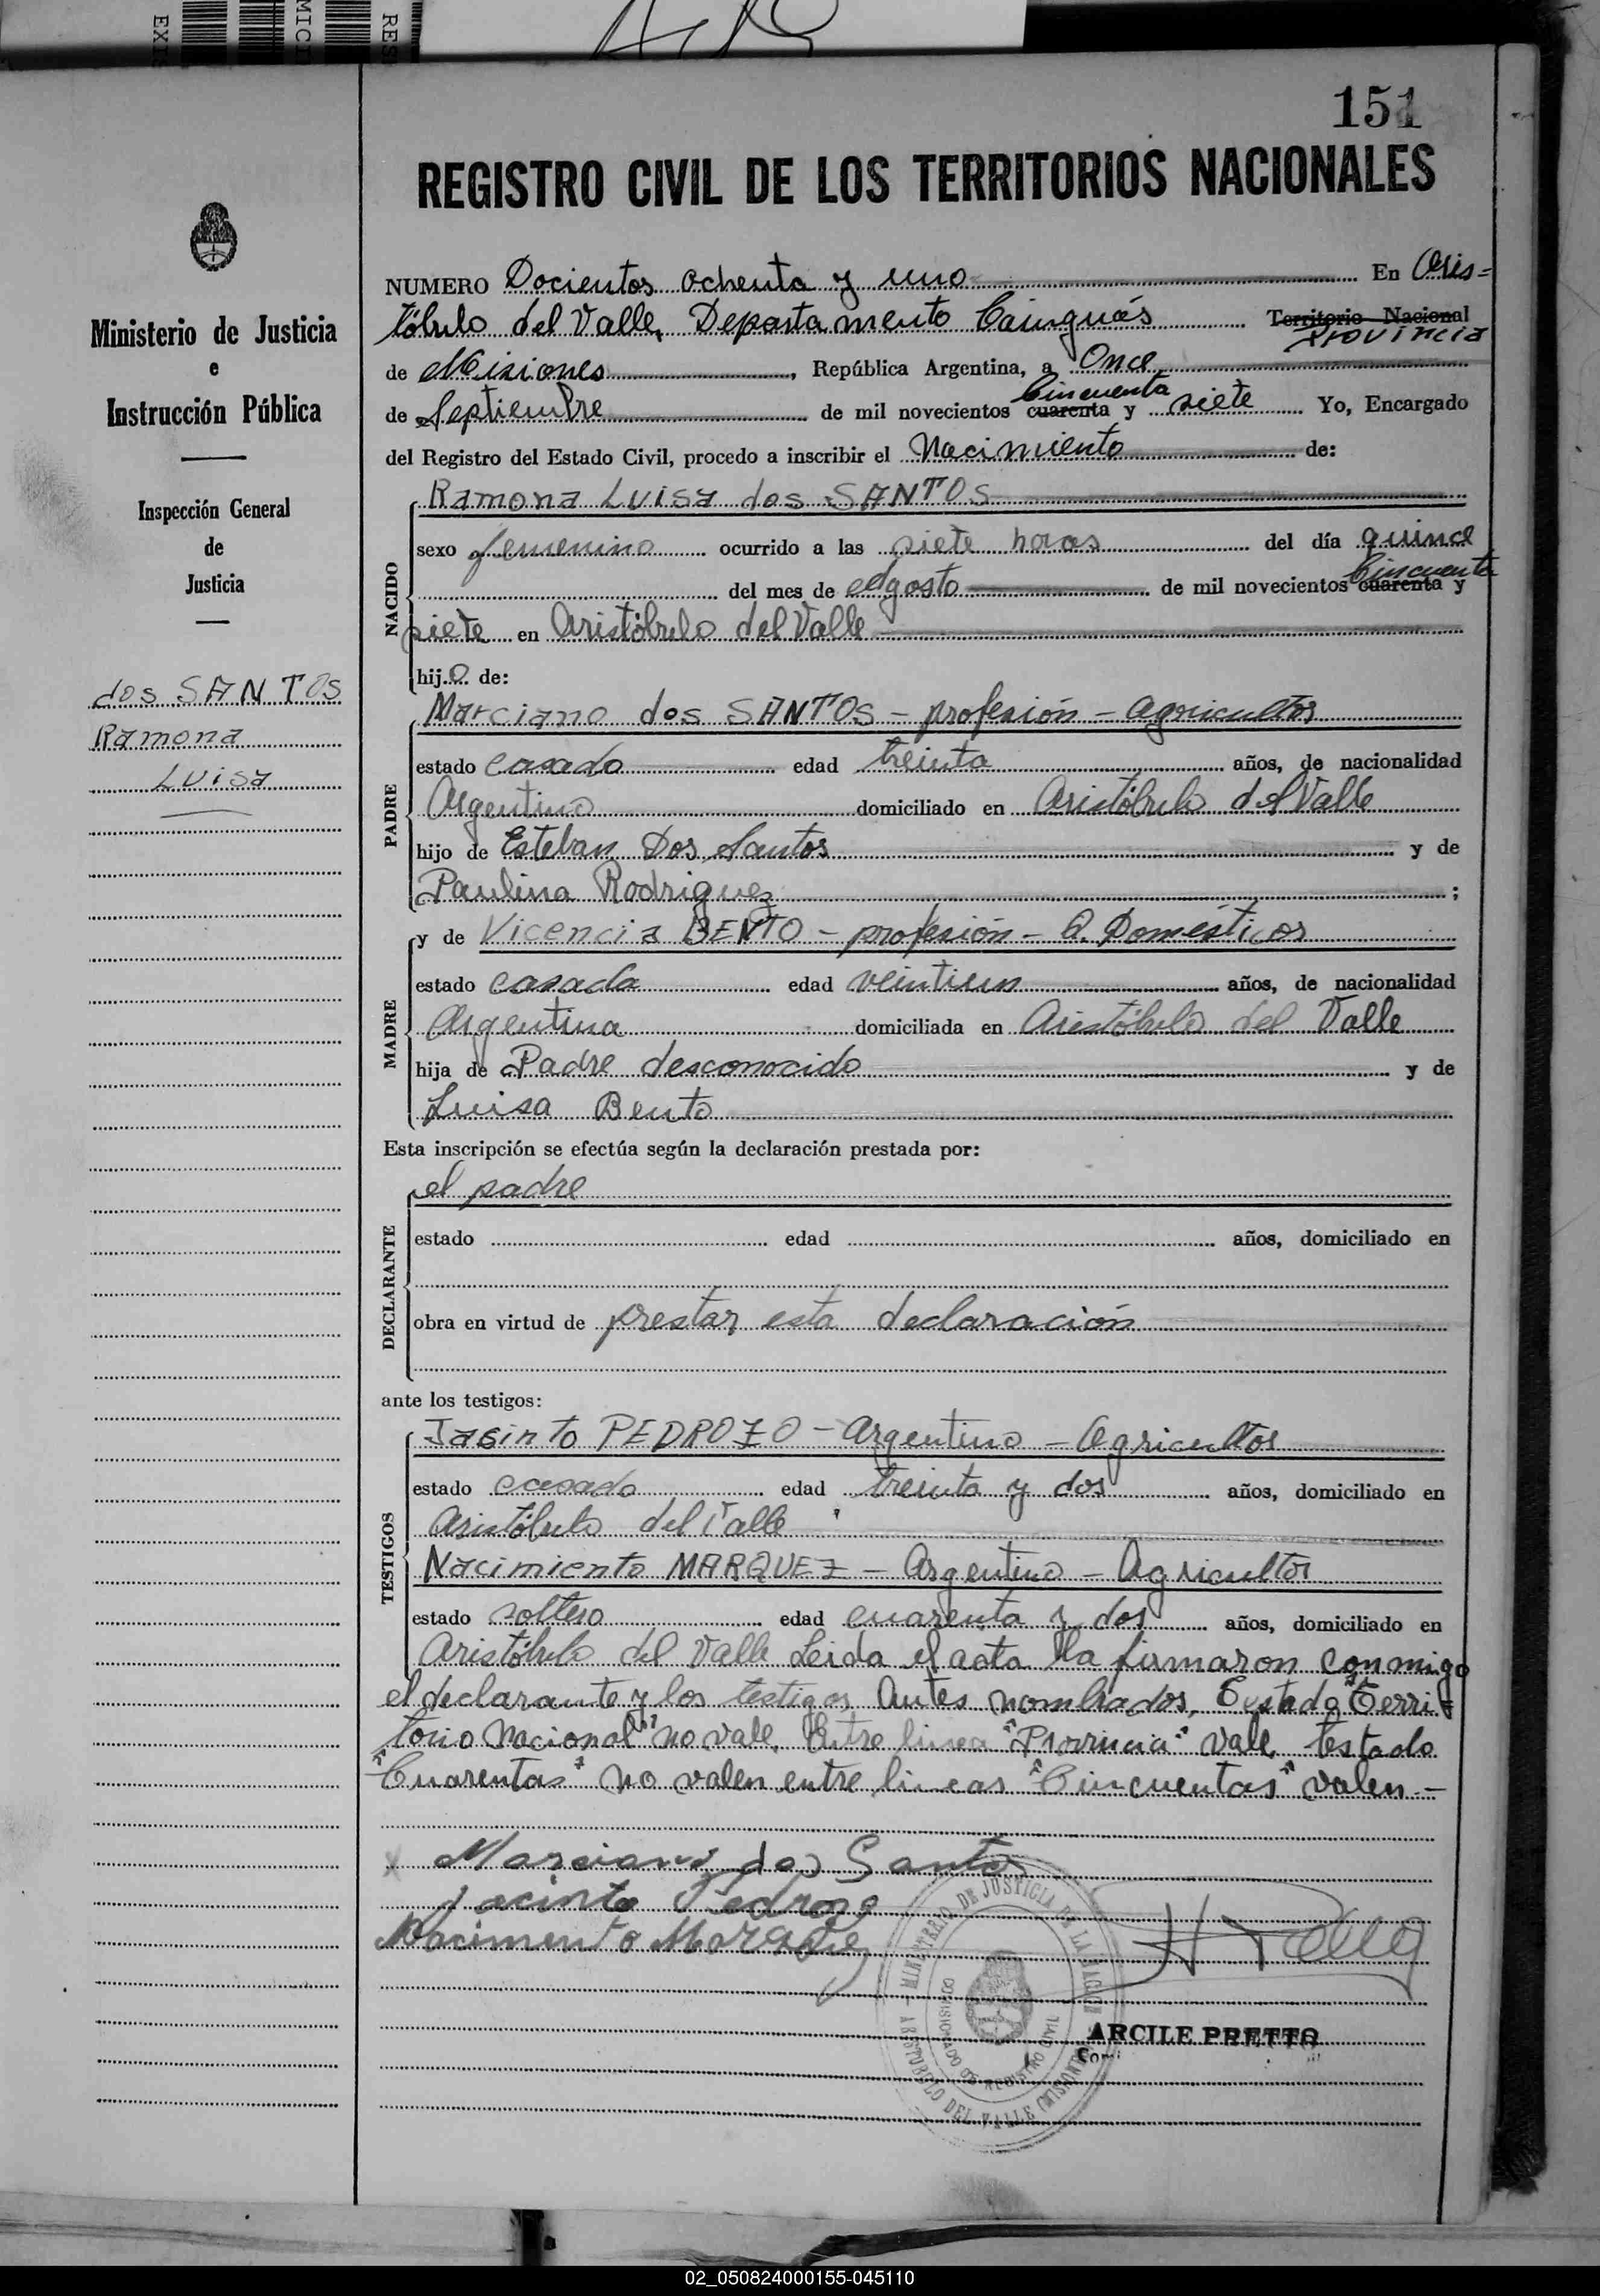 151
REGISTRO CIVIL DE LOS TERRITORIOS NACIONALES
Ministerio de Justicia
e
Instrucción Pública
Inspección General
de
Justicia
dos SANTOS
Ramona
Luisa
NUMERO Docientos ochenta y uno En Aris=
tóbulo del Valle, Departamento Cainguás Territorio Nacional
Provincia
de Misiones, República Argentina, a Once
Cincuenta
de Septiembre de mil novecientos cuarenta y siete Yo, Encargado
del Registro del Estado Civil, procedo a inscribir el Nacimiento de:
NACIDO
Ramona Luisa dos SANTOS
sexo femenino ocurrido a las siete horas del día quince
Cincuenta
del mes de Agosto de mil novecientos cuarenta y
siete en Aristóbulo del Valle
hijo de:
PADRE
Marciano dos SANTOS - profesión - Agricultor
estado casado edad treinta años, de nacionalidad
Argentino domiciliado en Aristóbulo del Valle
hijo de Esteban Dos Santos y de
Paulina Rodriguez ;
MADRE
y de Vicencia BENTO - profesión - Q. Domésticos
estado casada edad veintiun años, de nacionalidad
Argentina domiciliada en Aristóbulo del Valle
hija de Padre desconocido y de
Luisa Bento
Esta inscripción se efectúa según la declaración prestada por:
DECLARANTE
el padre
estado edad años, domiciliado en
obra en virtud de prestar esta declaración
ante los testigos:
TESTIGOS
Jasinto PEDROZO - Argentino - Agricultor
estado casado edad treinta y dos años, domiciliado en
Aristóbulo del Valle
Nacimiento MARQUEZ - Argentino - Agricultor
estado soltero edad cuarenta y dos años, domiciliado en
Aristóbulo del Valle Leida el acta la firmaron conmigo
el declarante y los testigos antes nombrados, Testado "Terri=
torio Nacional" no vale, Entre linea "Provincia" vale, testado
"Cuarentas" no valen entre lineas "Cincuentas" valen.-
Marciano dos Santos
Jacinto Pedrozo
Nacimento Marques
MINISTERIO DE JUSTICIA DE LA NACION
REGISTRO CIVIL
ARISTOBULO DEL VALLE (MISIONES)
ARCILE PRETTO
02_050824000155-045110